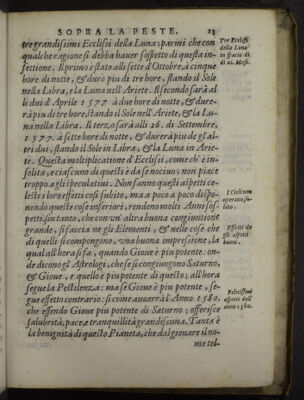 SOPRA LA PESTE. 13
tre grandissimi Ecclissi della Luna; parmi che con
qualche ragione si debba hauer sospetto di questa in-
fettione. Il primo è stato alli sette d'Ottobre, à cinque
hore di notte, & durò piu di tre hore, stando il Sole
nella Libra, e la Luna nell'Ariete. Il secondo sarà al
li dui d'Aprile 1577 à due hore di notte, & dure-
rà piu di tre hore, stando il Sole nell'Ariete, & la Lu
na nella Libra. Il terzo sarà alli 26. di Settembre,
1577. à sette hore di notte, & durerà piu de gl'al
tri dui, stando il Sole in Libra, & la Luna in Arie-
te. Questa moltiplicatione d'Ecclissi, come ch'è in-
solita, e ciascuno di questi è da se nociuo; non piace
troppo agli speculatiui. Non fanno questi aspetti ce-
lesti i loro effetti così subito, ma a poco a poco dispo-
nendo queste cose inferiori, rendeno molti Anni sos-
petti, sin tanto, che con vn'altra buona congiuntione
grande, si faccia ne gli Elementi, & nelle cose che
di quelli si compongono, vna buona impressione, la
qual'all'hora si fa, quando Gioue è piu potente: on-
de dicono gl'Astrologi, che se si congiungono Saturno,
& Gioue, e quello è piu potente di questo; all'hora
segue la Pestilenza: ma se Gioue è piu potente, se-
gue effetto contrario: si come auuerrà l'Anno 1580.
che essendo Gioue piu potente di Saturno, offerisce
salubrità, pace, e tranquillità grandissima. Tanta è
la benignità di questo Pianeta, che dal gionare il no-
me tol-
Tre Ecclissi
della Luna
in spatio di
di 12. Mesi.
I Cieli non
operano su-
bito.
Effetti de
gli aspetti
buoni.
Felicissimi
aspetti dell'
anno 1580.